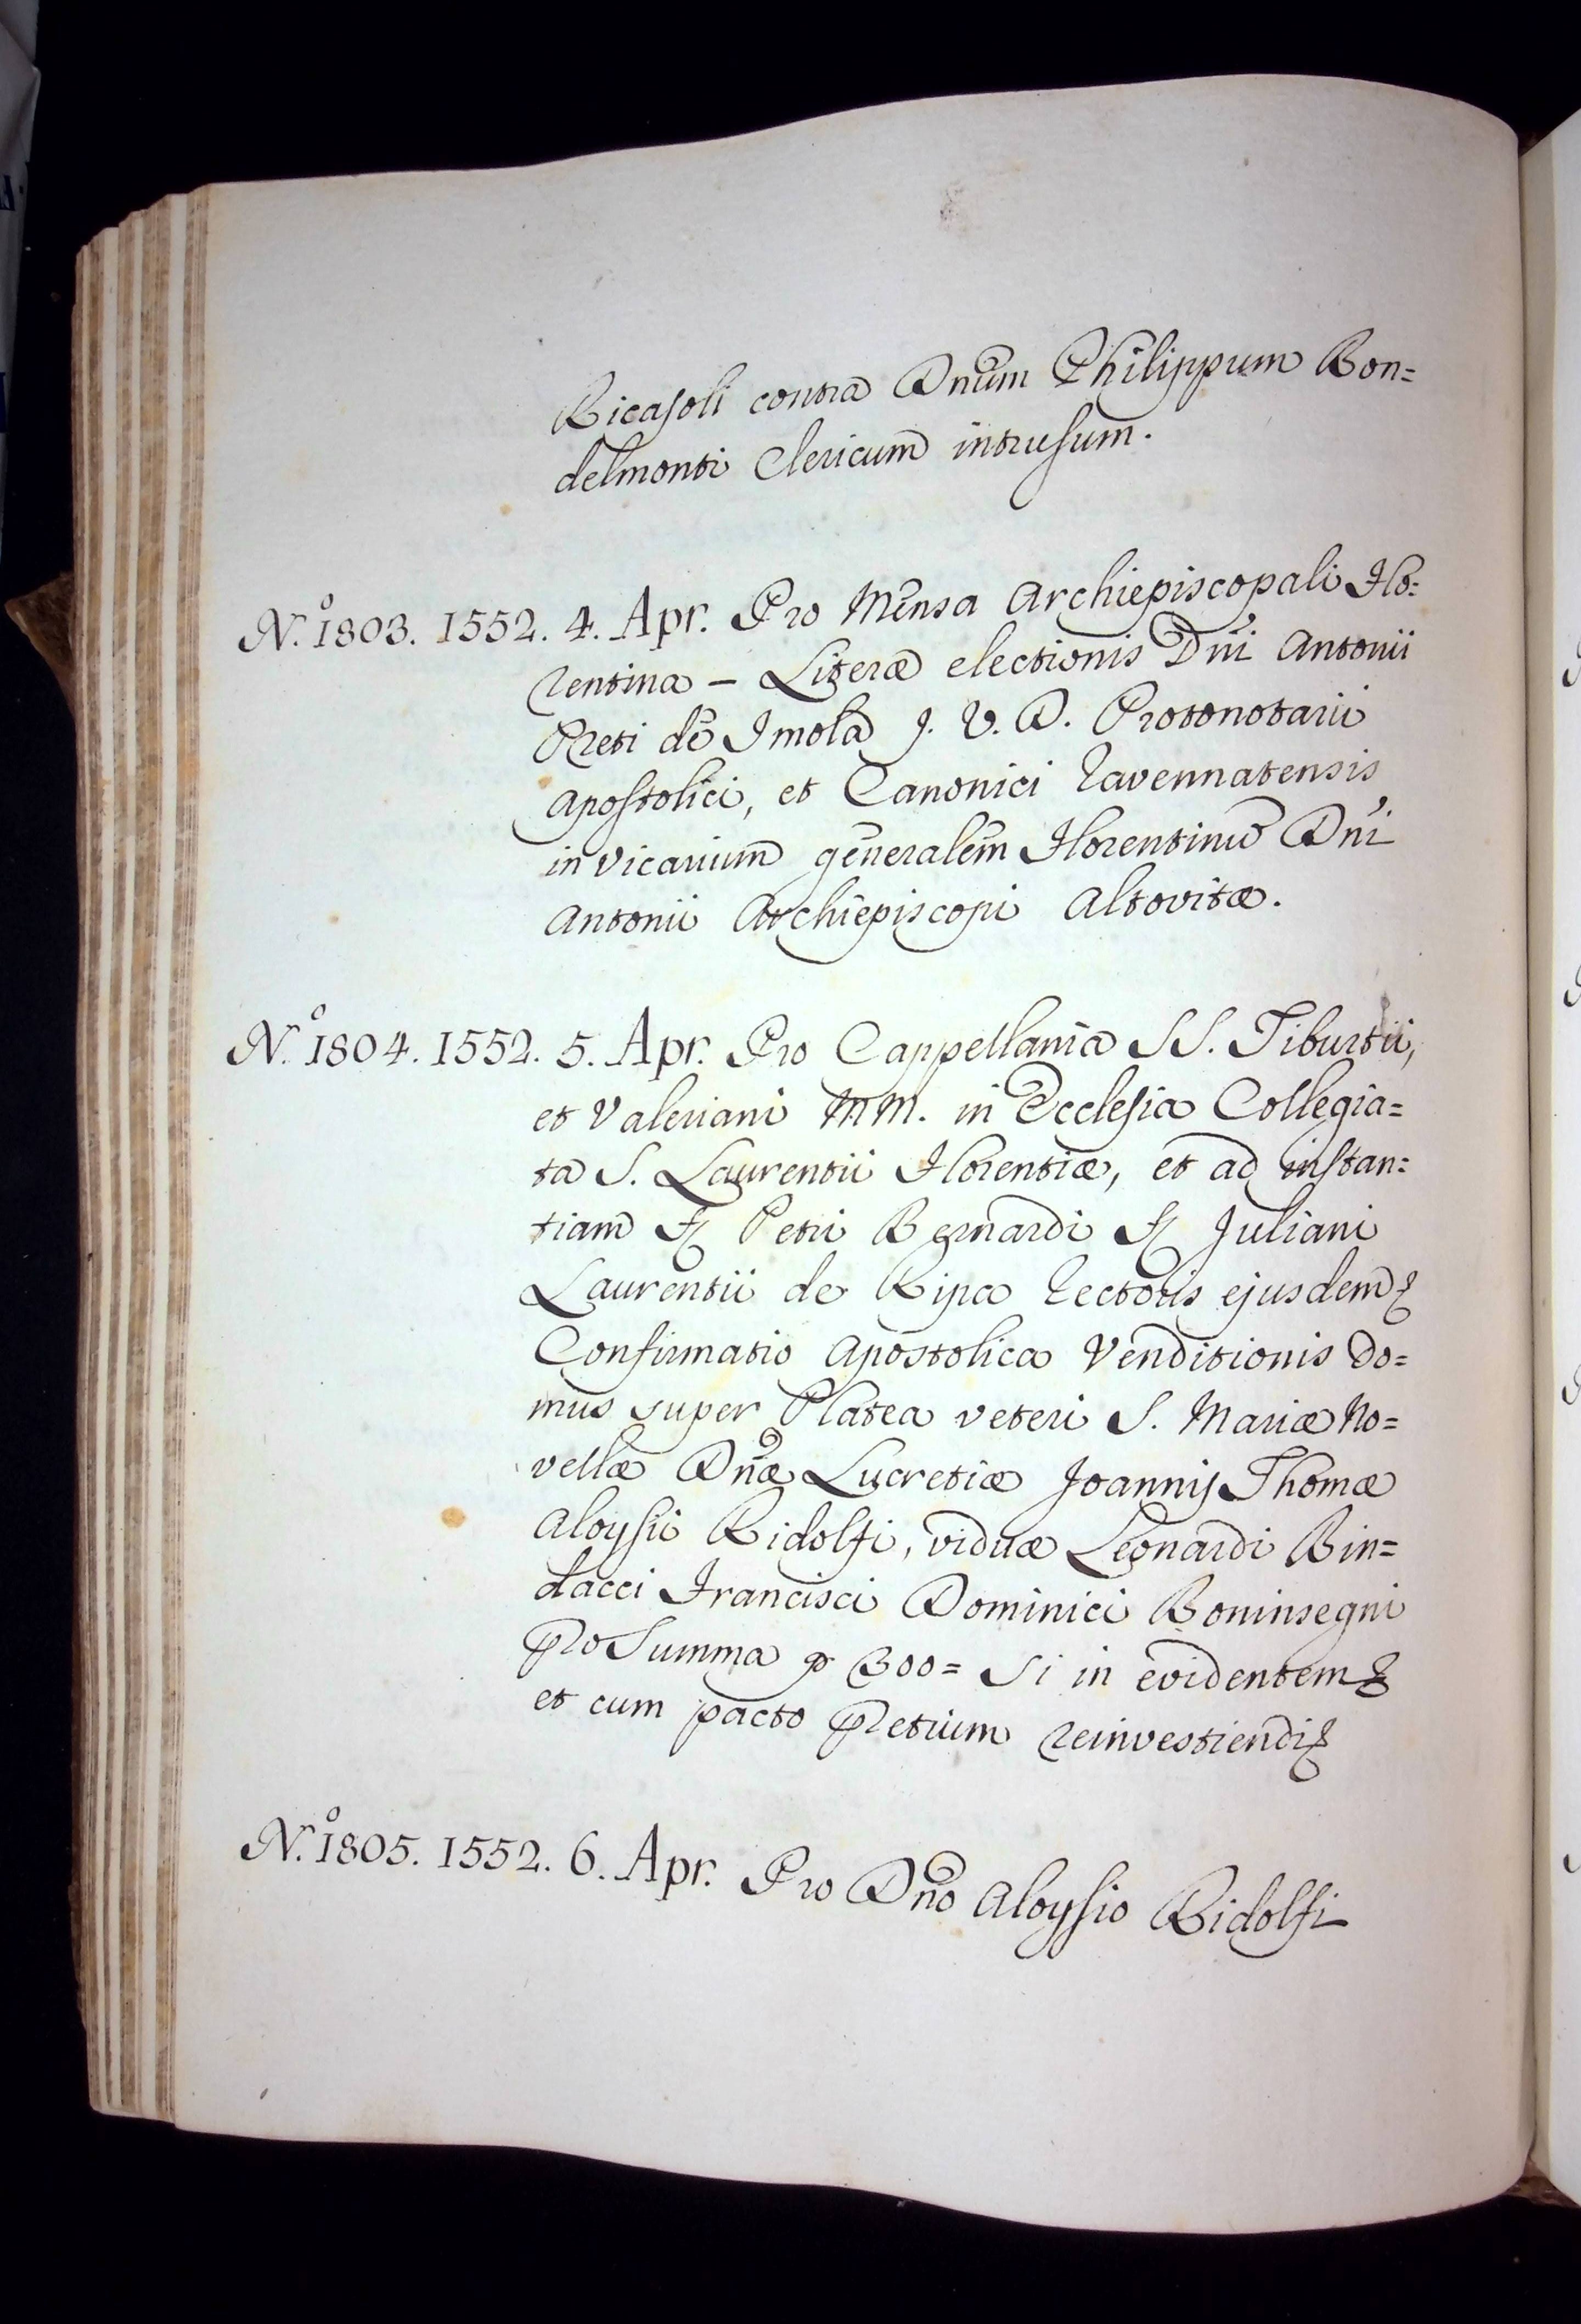 Ricasoli contra Dnum Philippum Bon=
delmonti Clericum intrusum.
N.º 1803. 1552. 4. Apr. Pro Mensa Archiepiscopali Flo=
rentina – Literæ electionis Dni Antonii
Preti de Imola J. V. D. Protonotarii
Apostolici, et Canonici Ravennatensis
in Vicarium generalem Florentinum Dni
Antonii Archiepiscopi Altovitæ.
N.º 1804. 1552. 5. Apr. Pro Cappellania SS. Tiburtii,
et Valeriani MM. in Ecclesia Collegia=
ta S. Laurentii Florentiæ, et ad instan=
tiam Petri Bernardi Juliani
Laurentii de Ripa Rectoris ejusdem
Confirmatio Apostolica Venditionis Do=
mus super Platea veteri S. Mariæ No=
vellæ Dnæ Lucretiæ Joannis Thomæ
Aloysii Ridolfi, viduæ Leonardi Bin=
dacci Francisci Dominici Boninsegni
pro Summa 300= Si in evidentem
et cum pacto pretium reinvestiendi
N.º 1805. 1552. 6. Apr. Pro Dno Aloysio Ridolfi